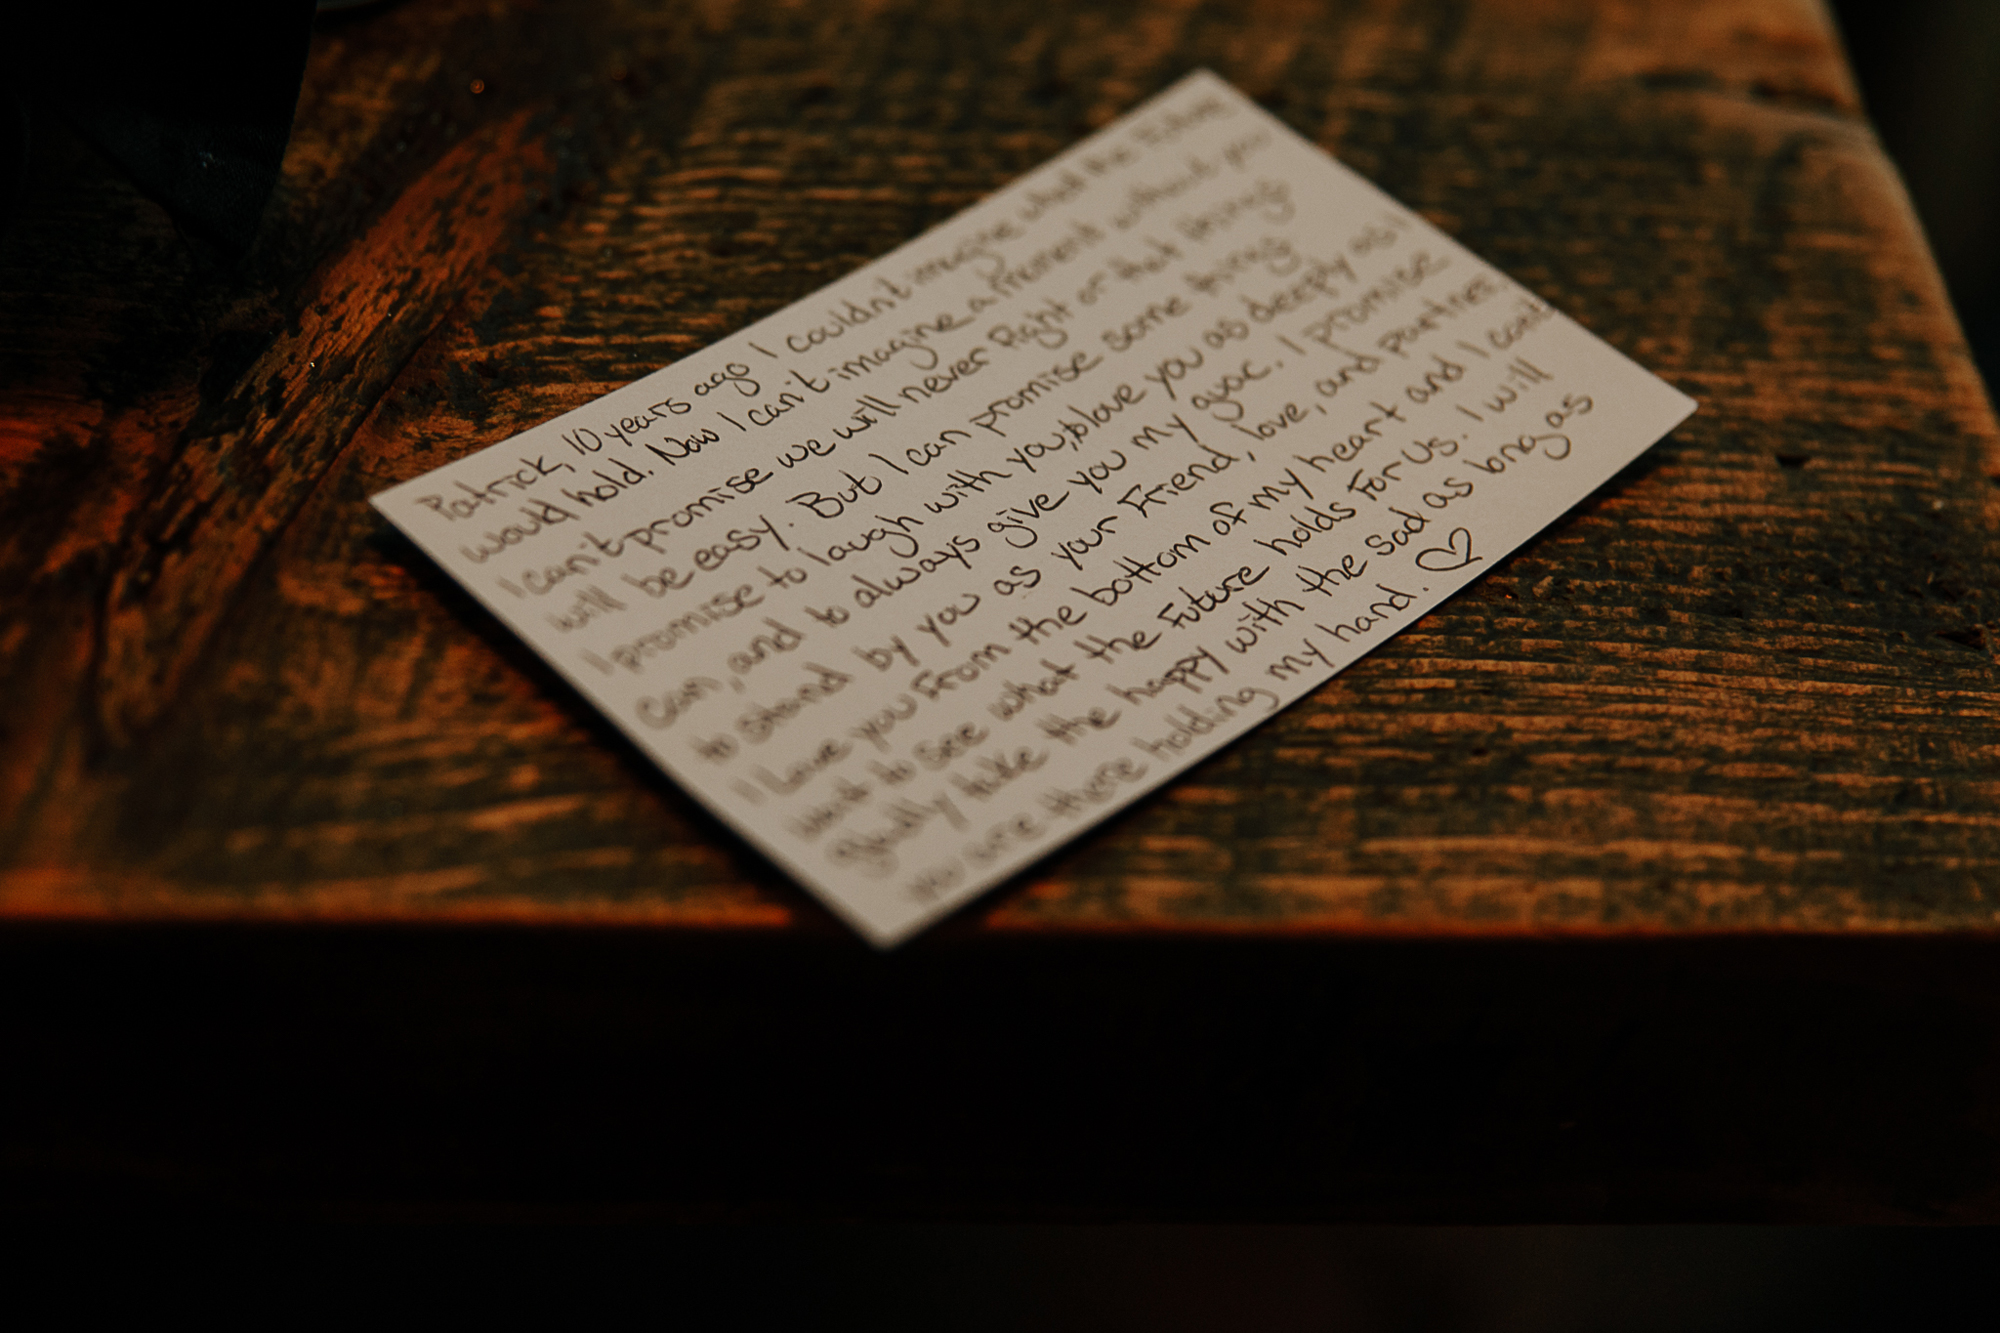 Patrick, 10 years ago I couldn't imagine what the future
would hold. Now I can't imagine a moment without you
I can't promise we will never fight or that things
will be easy. But I can promise some things
I promise to laugh with you, love you as deeply as I
can, and to always give you my guac. I promise
to stand by you as your friend, love, and partner.
I love you from the bottom of my heart and I can't
wait to see what the future holds for us. I will
gladly take the happy with the sad as long as
you are there holding my hand. ♡